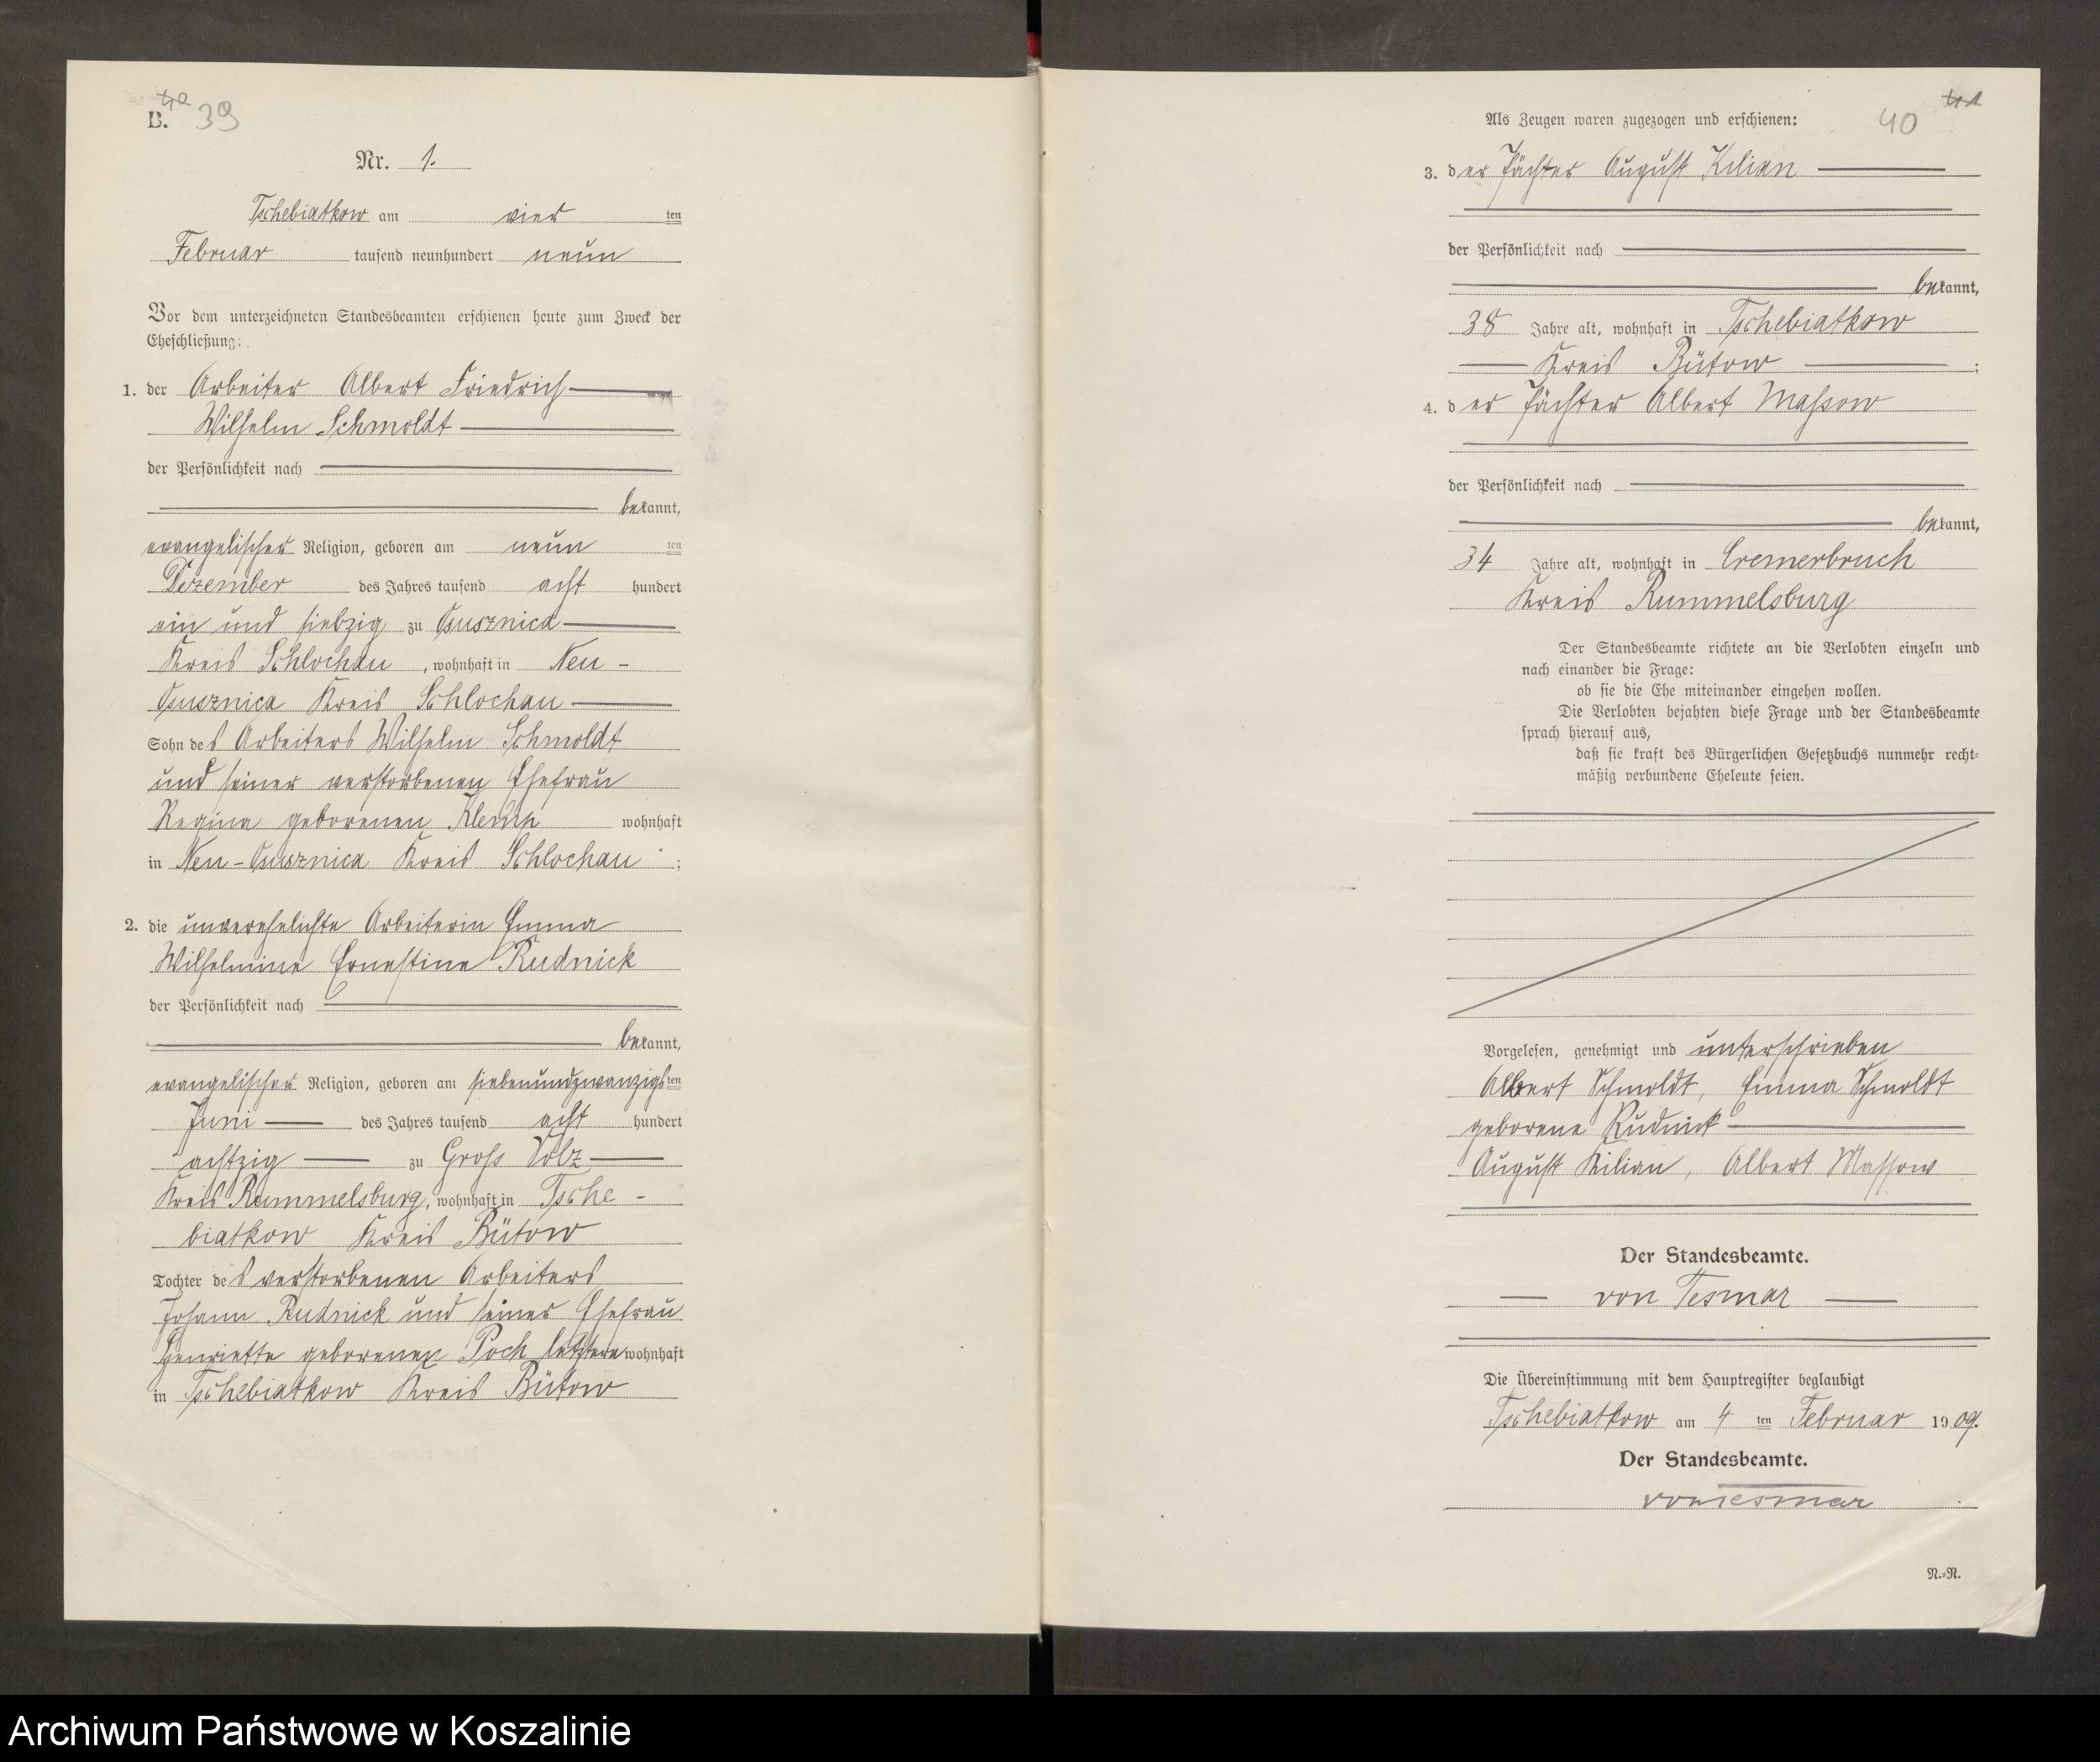 B. 40 39
Nr. 1.
Tschebiatkow am vier ten
Februar tausend neunhundert neun
Vor dem unterzeichneten Standesbeamten erschienen heute zum Zweck der
Eheschließung:
1. der Arbeiter Albert Friedrich
Wilhelm Schmoldt
der Persönlichkeit nach
bekannt,
evangelischer Religion, geboren am neun ten
Dezember des Jahres tausend acht hundert
ein und siebzig zu Osusznica
Kreis Schlochau, wohnhaft in Neu-
Osusznica Kreis Schlochau
Sohn des Arbeiters Wilhelm Schmoldt
und seiner verstorbenen Ehefrau
Regina geborenen wohnhaft
in Neu-Osusznica Kreis Schlochau;
2. die unverehelichte Arbeiterin Emma
Wilhelmine Ernestine Rudnick
der Persönlichkeit nach
bekannt,
evangelischer Religion, geboren am siebenundzwanzigsten
Juni des Jahres tausend acht hundert
achtzig zu Gross Volz
Kreis Rummelsburg, wohnhaft in Tsche-
biatkow Kreis Bütow
Tochter des verstorbenen Arbeiters
Johann Rudnick und seiner Ehefrau
Henriette geborenen Poch letztere wohnhaft
in Tschebiatkow Kreis Bütow
41
Als Zeugen waren zugezogen und erschienen: 40
3. der Pächter August Kilian
der Persönlichkeit nach
bekannt,
38 Jahre alt, wohnhaft in Tschebiatkow
Kreis Bütow;
4. der Pächter Albert Massow
der Persönlichkeit nach
bekannt,
34 Jahre alt, wohnhaft in Cremerbruch
Kreis Rummelsburg
Der Standesbeamte richtete an die Verlobten einzeln und
nach einander die Frage:
ob sie die Ehe miteinander eingehen wollen.
Die Verlobten bejahten diese Frage und der Standesbeamte
sprach hierauf aus,
daß sie kraft des Bürgerlichen Gesetzbuchs nunmehr recht-
mäßig verbundene Eheleute seien.
Vorgelesen, genehmigt und unterschrieben
Albert Schmoldt, Emma Schmoldt
geborene Rudnick
August Kilian, Albert Massow
Der Standesbeamte.
von Tesmar
Die Übereinstimmung mit dem Hauptregister beglaubigt
Tschebiatkow am 4 ten Februar 1909.
Der Standesbeamte.
von Tesmar
N.-N.
Archiwum Państwowe w Koszalinie